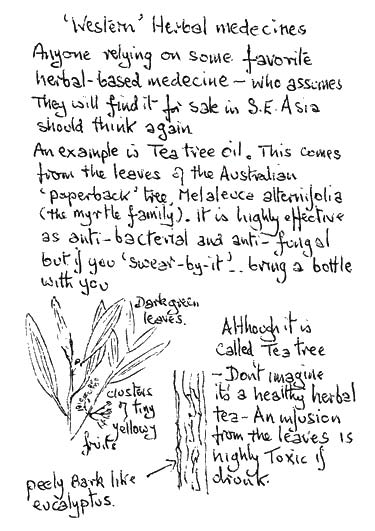 'Western' Herbal medecines
Anyone relying on some favorite
herbal-based medecine – who assumes
They will find it for sale in S.E. Asia
should think again
An example is Tea tree Oil. This comes
from the leaves of the Australian
'paperback' tree, Melaleuca alternifolia
(the myrtle family). it is highly effective
as anti-bacterial and anti-fungal
but if you 'swear-by-it'... bring a bottle
with you
Dark green
leaves.
clusters
of tiny
yellowy
fruits
peely Bark like
eucalyptus.
Although it is
called Tea tree
– Don't imagine
it's a healthy herbal
tea – An infusion
from the leaves is
highly Toxic if
drunk.